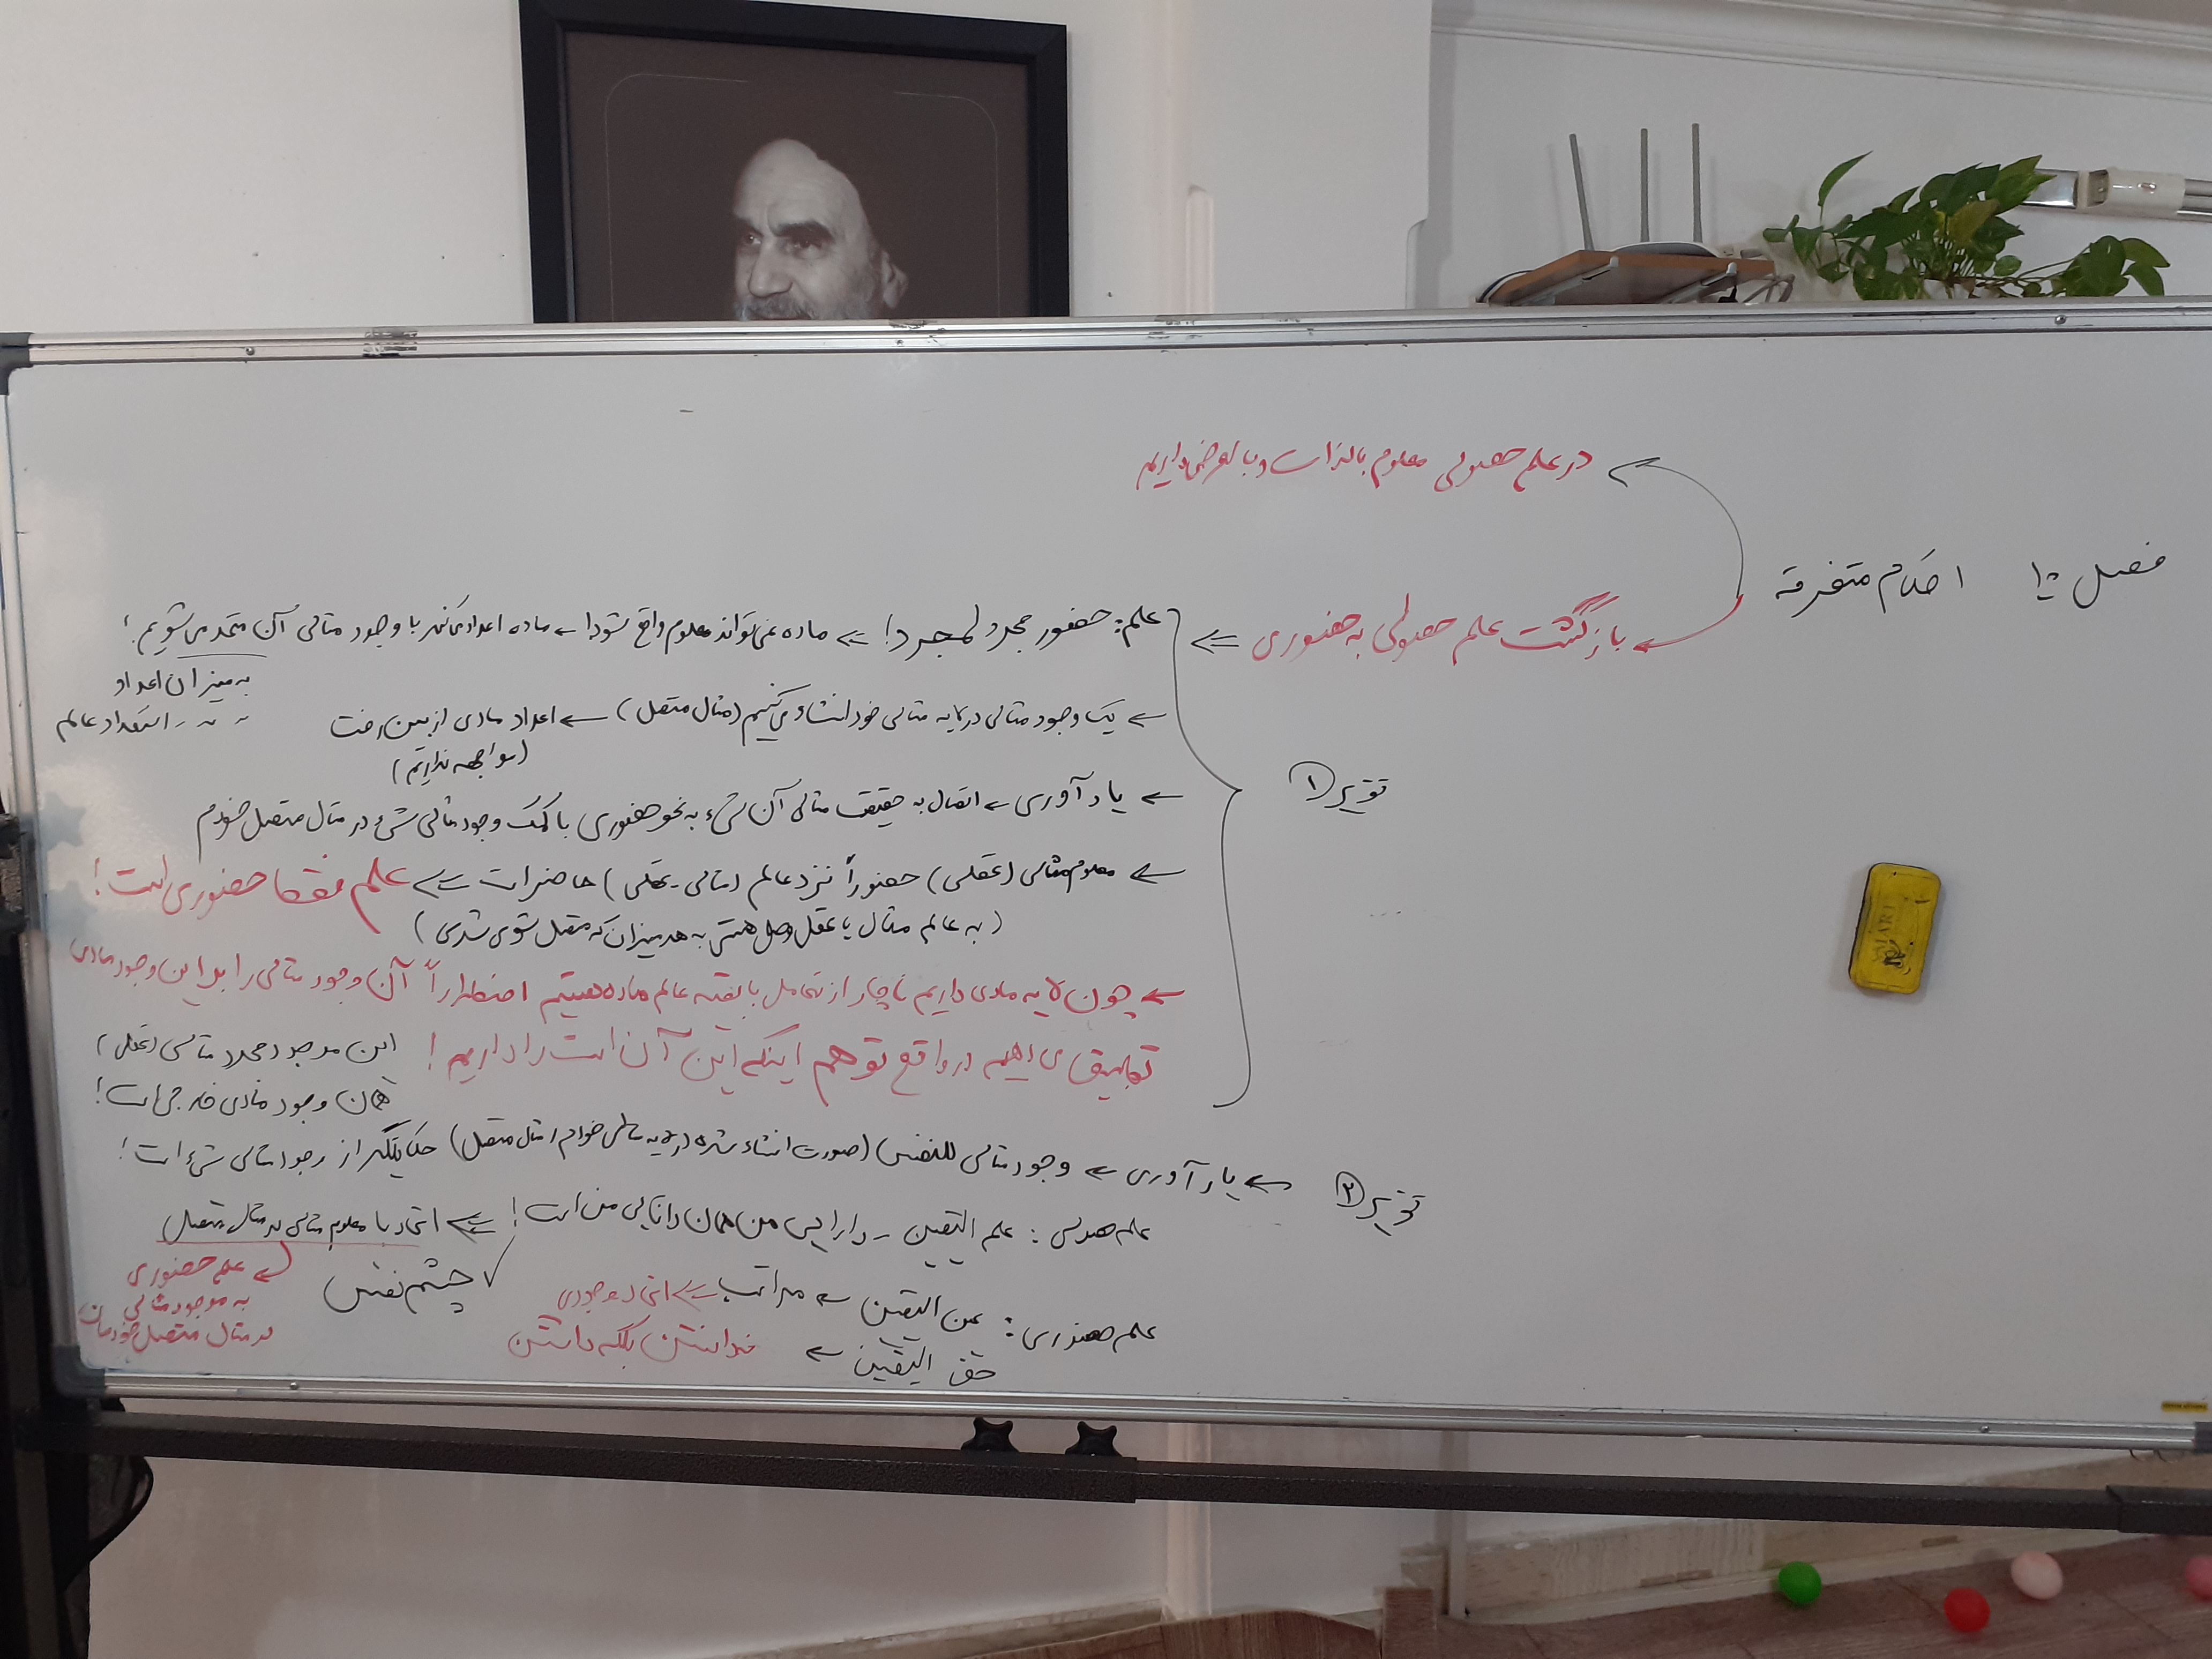 فصل ۱۰ احکام متفرقه
در علم حصولی معلوم بالذات و بالعرض داریم
بازگشت علم حصولی به حضوری
تقریر ۱
علم: حضور مجرد لمجرد! ⇐ ماده نمی‌تواند معلوم واقع شود! ← ماده اعداد می‌کند با وجود مثالی آن متحد می‌شویم!
به میزان اعداد
〃 〃 استعداد عالم
← یک وجود مثالی در لایه مثالی خود انشاء می‌کنیم (مثال متصل) ← اعداد مادی از بین رفت
(مواجهه نداریم)
← یادآوری ← اتصال به حقیقت مثالی آن شیء به نحو حضوری با کمک وجود مثالی شیء در مثال متصل خودم
← معلوم مثالی (عقلی) حضوراً نزد عالم (مثالی - عقلی) حاضر است ⇐ علم فقط حضوری است!
(به عالم مثال یا عقل وصل هستی به هر میزان که متصل شوی شدی)
← چون لایه مادی داریم ناچار از تعامل با بقیه عالم ماده هستیم اضطراراً آن وجود مثالی را بر این وجود مادی
تطبیق می‌دهیم در واقع توهم اینکه این آن است را داریم!
این موجود مجرد مثالی (عقلی)
همان وجود مادی خارجی است!
تقریر ۲
← یادآوری ← وجود مثالی للنفس (صورت انشاء شده در لایه مثالی خودم مثال متصل) حکایتگر از وجود مثالی شیء است!
علم حصولی: علم الیقین - دارایی من همان دانایی من است! ⇐ اتحاد با معلوم مثالی در مثال متصل
چشم نفس
علم حضوری
به موجود مثالی
در مثال متصل خودمان
علم حضوری: عین الیقین ← مراتب ⇐ اتحاد وجودی
حق الیقین ← ندانستن بلکه داشتن